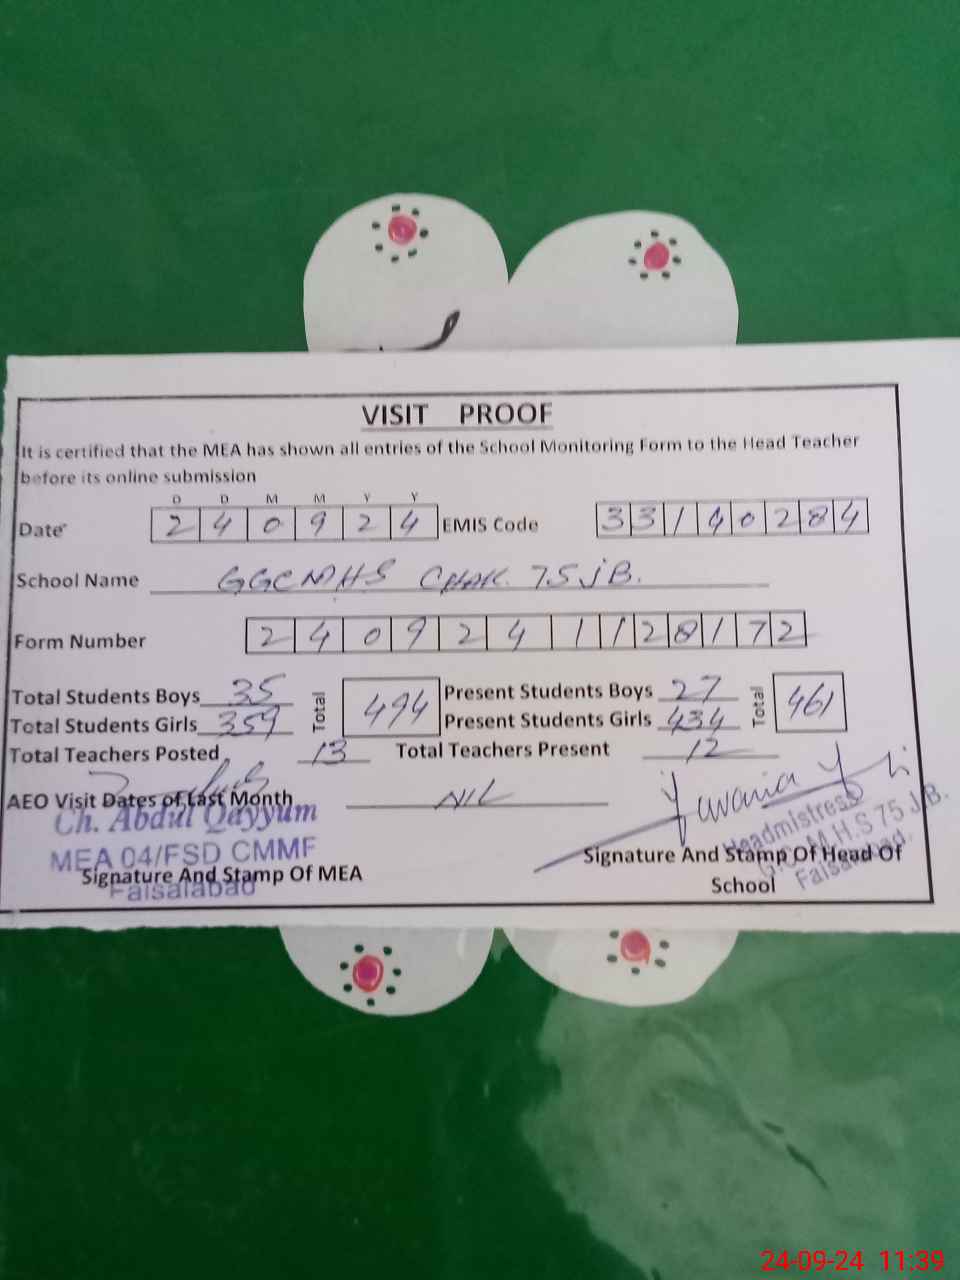 VISIT PROOF
It is certified that the MEA has shown all entries of the School Monitoring Form to the Head Teacher
before its online submission
D D M M Y Y
Date 2 4 0 9 2 4 EMIS Code 3 3 1 4 0 2 8 4
School Name GGCMHS CHAK. 75 JB.
Form Number 2 4 0 9 2 4 1 1 2 8 1 7 2
Total Students Boys 35 Total 494 Present Students Boys 27 Total 461
Total Students Girls 359 Present Students Girls 434
Total Teachers Posted 13 Total Teachers Present 12
AEO Visit Dates of Last Month NIL
Ch. Abdul Qayyum
MEA 04/FSD CMMF
Faisalabad
Signature And Stamp Of MEA
Headmistress
M.H.S 75 J.B.
Faisalabad.
Signature And Stamp Of Head Of
School
24-09-24 11:39